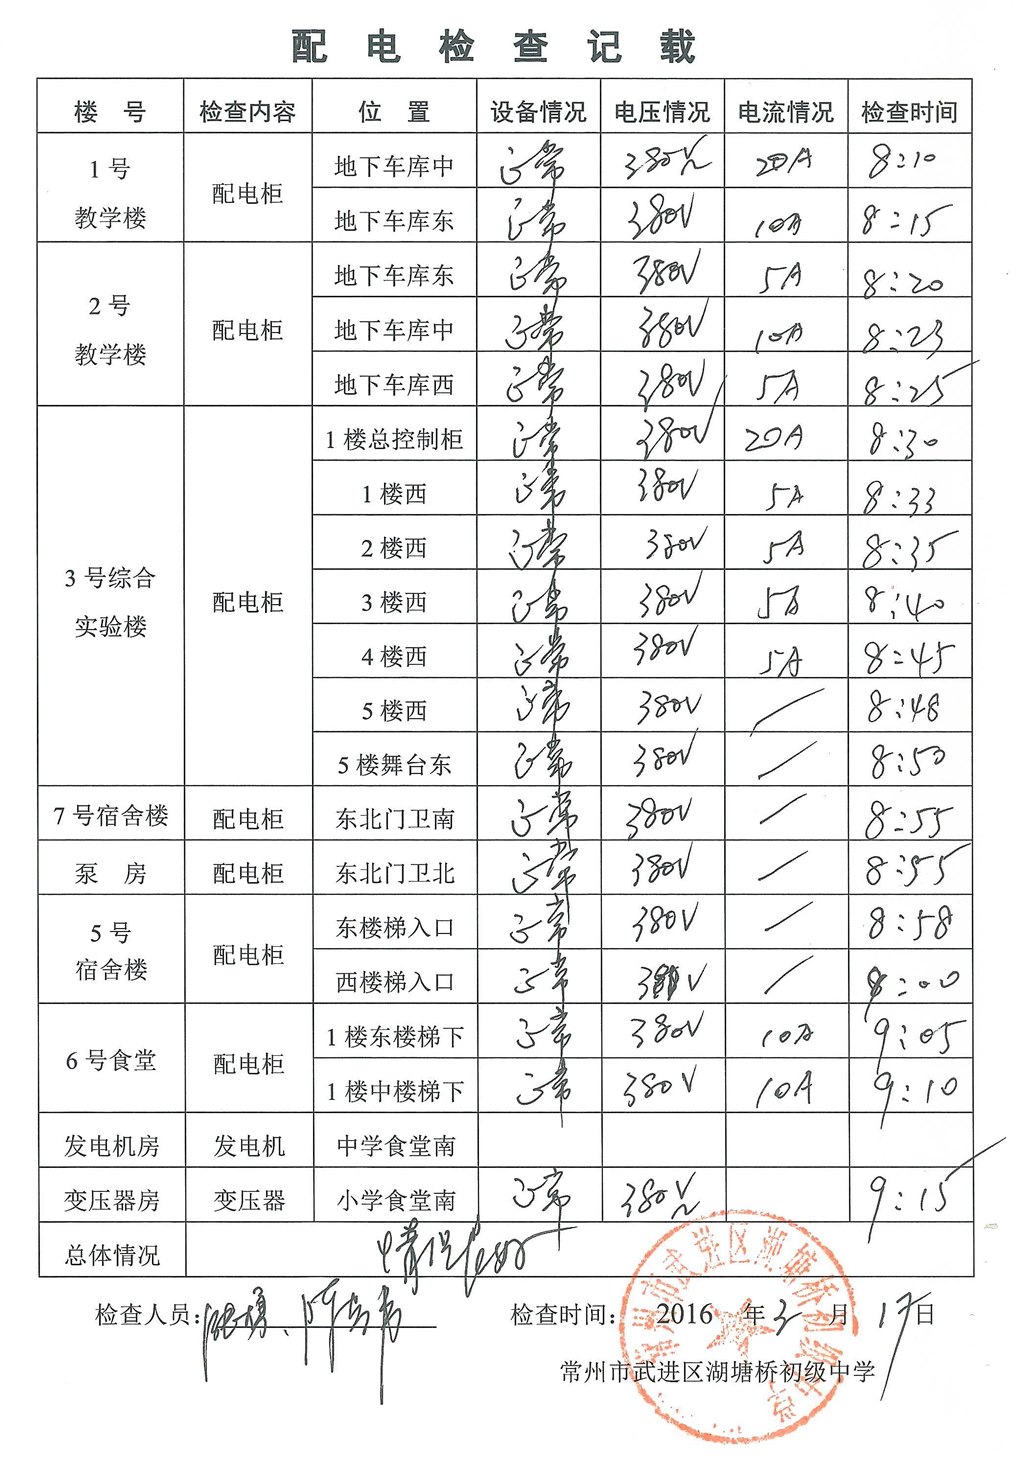 配电检查记载
楼号 检查内容 位置 设备情况 电压情况 电流情况 检查时间
1号教学楼 配电柜 地下车库中 正常 380V 20A 8:10
地下车库东 正常 380V 10A 8:15
2号教学楼 配电柜 地下车库东 正常 380V 5A 8:20
地下车库中 正常 380V 10A 8:23
地下车库西 正常 380V 5A 8:25
3号综合实验楼 配电柜 1楼总控制柜 正常 380V 20A 8:30
1楼西 正常 380V 5A 8:33
2楼西 正常 380V 5A 8:35
3楼西 正常 380V 5A 8:40
4楼西 正常 380V 5A 8:45
5楼西 正常 380V / 8:48
5楼舞台东 正常 380V / 8:50
7号宿舍楼 配电柜 东北门卫南 正常 380V / 8:55
泵房 配电柜 东北门卫北 正常 380V / 8:55
5号宿舍楼 配电柜 东楼梯入口 正常 380V / 8:58
西楼梯入口 正常 380V / 8:00
6号食堂 配电柜 1楼东楼梯下 正常 380V 10A 9:05
1楼中楼梯下 正常 380V 10A 9:10
发电机房 发电机 中学食堂南
变压器房 变压器 小学食堂南 正常 380V 9:15
总体情况 情况良好
检查人员: 检查时间: 2016年3月17日
常州市武进区湖塘桥初级中学
常州市武进区湖塘桥初级中学